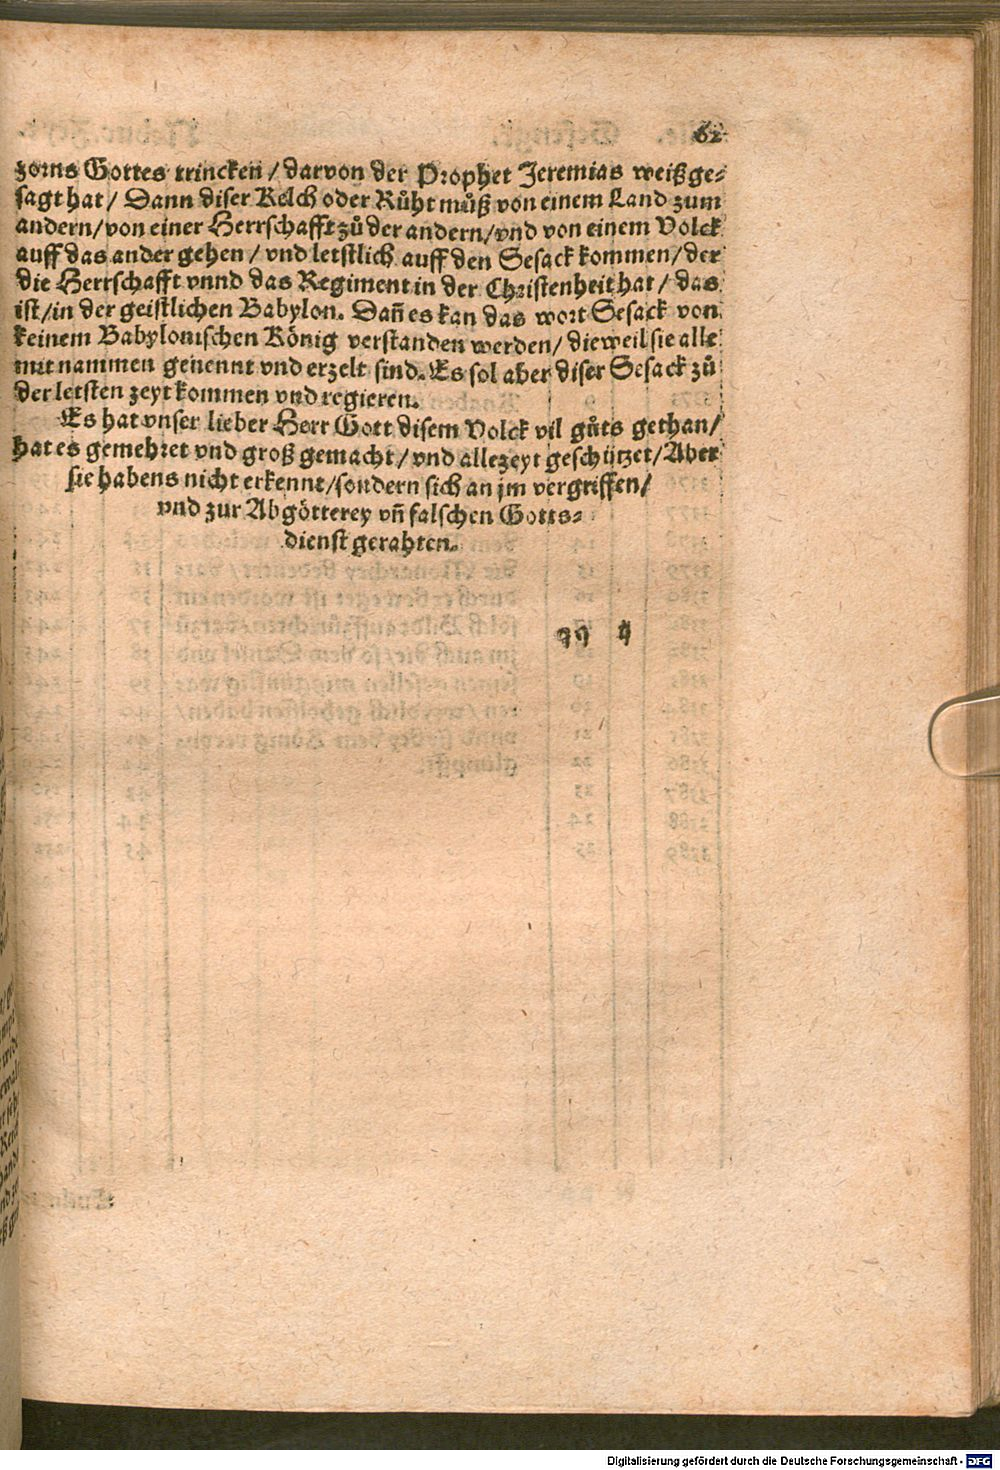 62
zorns Gottes trincken / darvon der Prophet Jeremias weißge⸗
sagt hat / Dann diser Kelch oder Růht můß von einem Land zum
andern/von einer Herrschafft zů der andern/vnd von einem Volck
auff das ander gehen / vnd letstlich auff den Sesack kommen/der
die Herrschafft vnnd das Regiment in der Christenheit hat / das
ist/in der geistlichen Babylon. Dañ es kan das wort Sesack von
keinem Babylonischen König verstanden werden/ dieweil sie alle
mit nammen genennt vnd erzelt sind. Es sol aber diser Sesack zů
der letsten zeyt kommen vnd regieren.
Es hat vnser lieber Herr Gott disem Volck vil gůts gethan/
hat es gemehret vnd groß gemacht/vnd allezeyt geschützet/Aber
sie habens nicht erkennt/sondern sich an jm vergriffen/
vnd zur Abgötterey vñ falschen Gotts⸗
dienst gerahten.
Digitalisierung gefördert durch die Deutsche Forschungsgemeinschaft - DFG